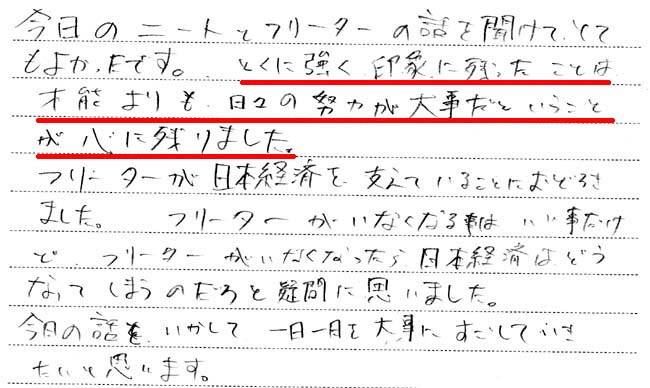 今日のニートとフリーターの話を聞けてとて
もよかったです。とくに強く印象に残ったことは
才能よりも、日々の努力が大事だということ
が心に残りました。
フリーターが日本経済を支えていることにおどろき
ました。 フリーターがいなくなる事はいい事だけ
ど、フリーターがいなくなったら日本経済はどう
なってしまうのだろと疑問に思いました。
今日の話を、いかして一日一日を大事にすごしていき
たいと思います。